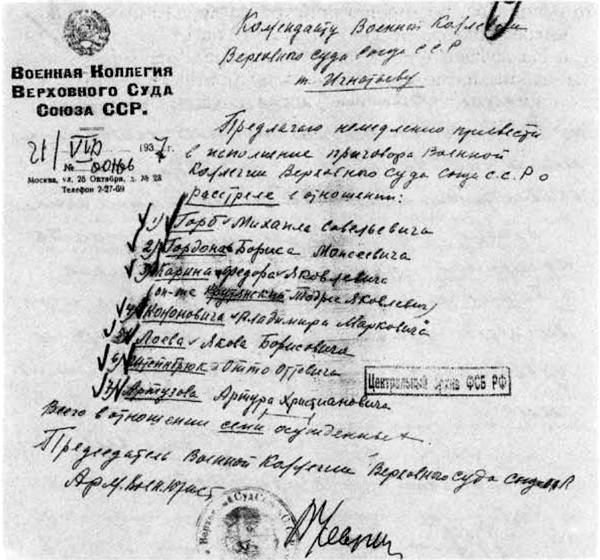 Коменданту Военной Коллегии
Верховного Суда Союза ССР
т. Игнатьеву
ВОЕННАЯ КОЛЛЕГИЯ
ВЕРХОВНОГО СУДА
СОЮЗА ССР.
21/VIII 1937 г.
№ 00166
Москва, ул. 25 Октября, д. № 23
Телефон 2-27-69
Предлагаю немедленно привести
в исполнение приговора Военной
Коллегии Верховного Суда Союза ССР о
расстреле в отношении:
1) Горб Михаила Савельевича
2) Гордона Бориса Моисеевича
3) Карина Федора Яковлевича
(он-же Крутянский Тодрес Яковлевич)
4) Кононовича Владимира Марковича
5) Лоева Якова Борисовича
6) Штейнбрюк Отто Оттовича
7) Артузова Артура Христиановича
Всего в отношении семи осужденных.
Центральный архив ФСБ РФ
Председатель Военной Коллегии Верховного Суда Союза ССР
Армвоенюрист